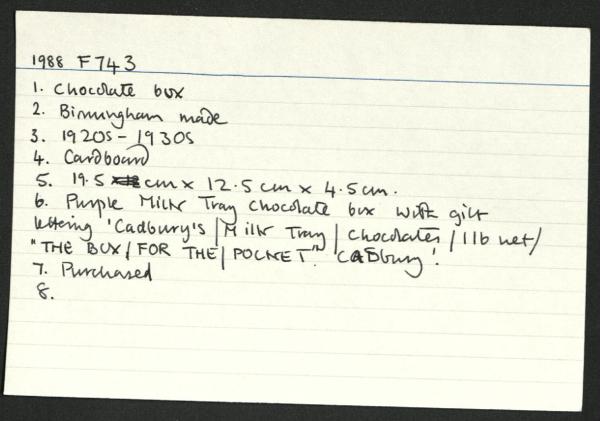 1988 F743
1. Chocolate box
2. Birmingham made
3. 1920s - 1930s
4. Cardboard
5. 19.5 cm x 12.5 cm x 4.5 cm.
6. Purple Milk Tray chocolate box with gilt
lettering 'Cadbury's / Milk Tray / Chocolates / 1lb net /
"THE BOX / FOR THE / POCKET". Cadbury'.
7. Purchased
8.